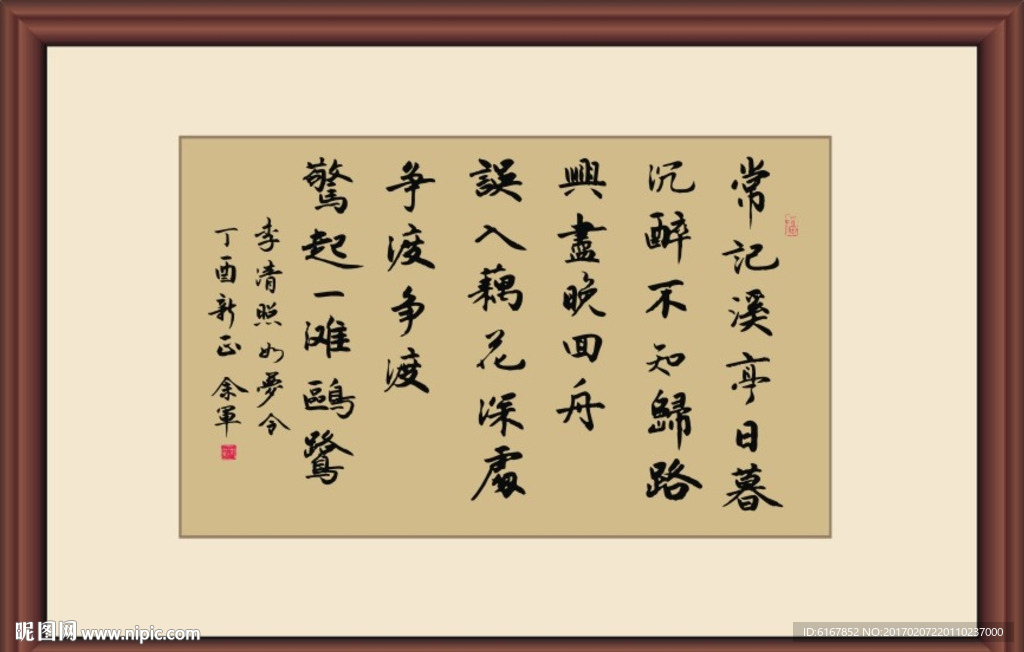 常記溪亭日暮
沉醉不知歸路
興盡晚回舟
誤入藕花深處
争渡争渡
驚起一滩鷗鷺
李清照如夢令
丁酉新正 余軍
昵图网 www.nipic.com
ID:6167852 NO:20170207220110237000